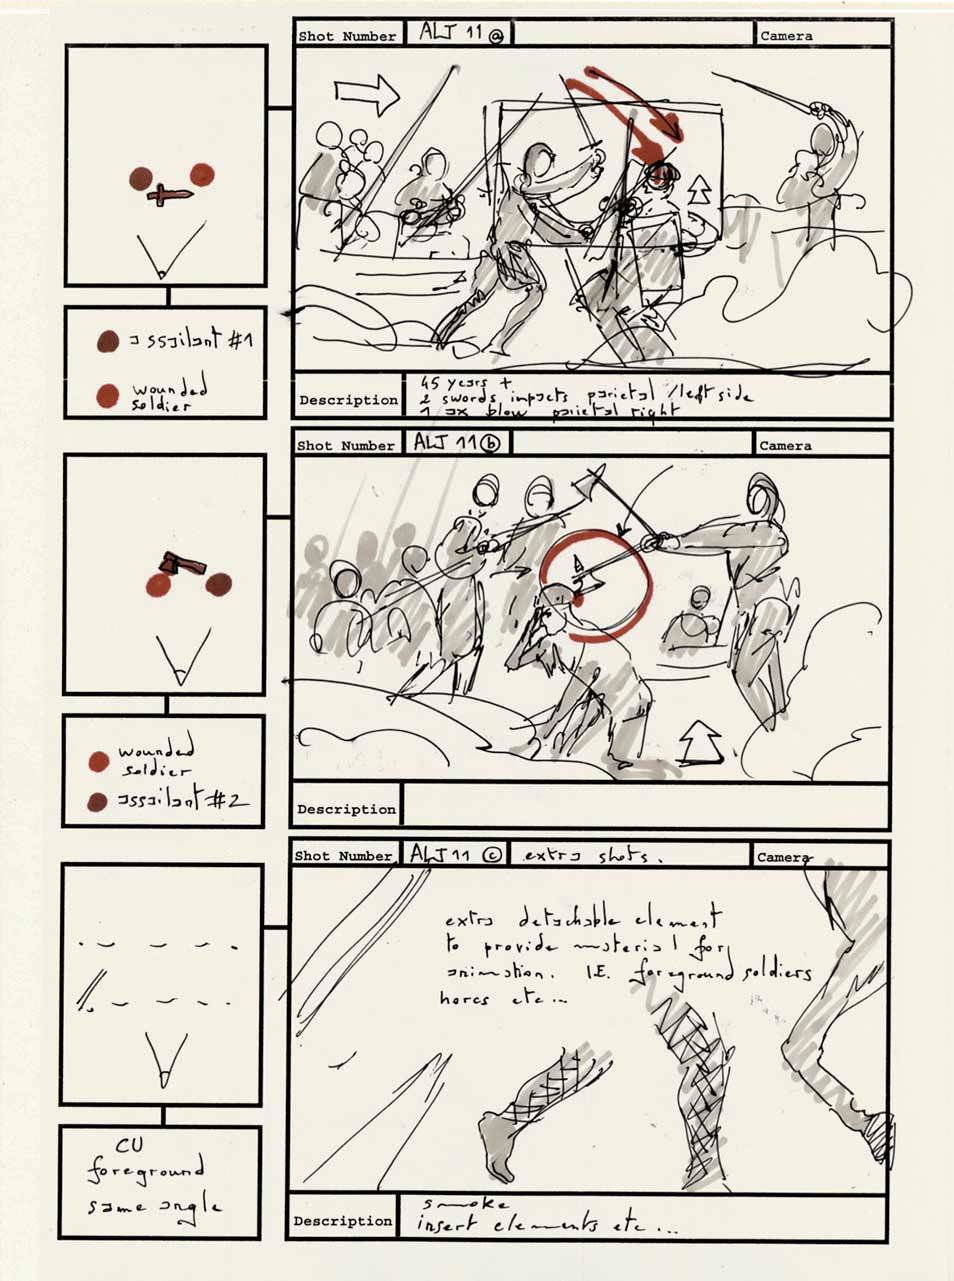 Shot Number ALT 11 a Camera
assailant #1
wounded
soldier
Description
45 years +
2 swords impacts parietal / left side
1 ax blow parietal right
Shot Number ALT 11 b Camera
wounded
soldier
assailant #2
Description
Shot Number ALT 11 c extra shots. Camera
extra detachable element
to provide material for
animation. I.E. foreground soldiers
horcs etc...
CU
foreground
same angle
Description
smoke
insert elements etc...